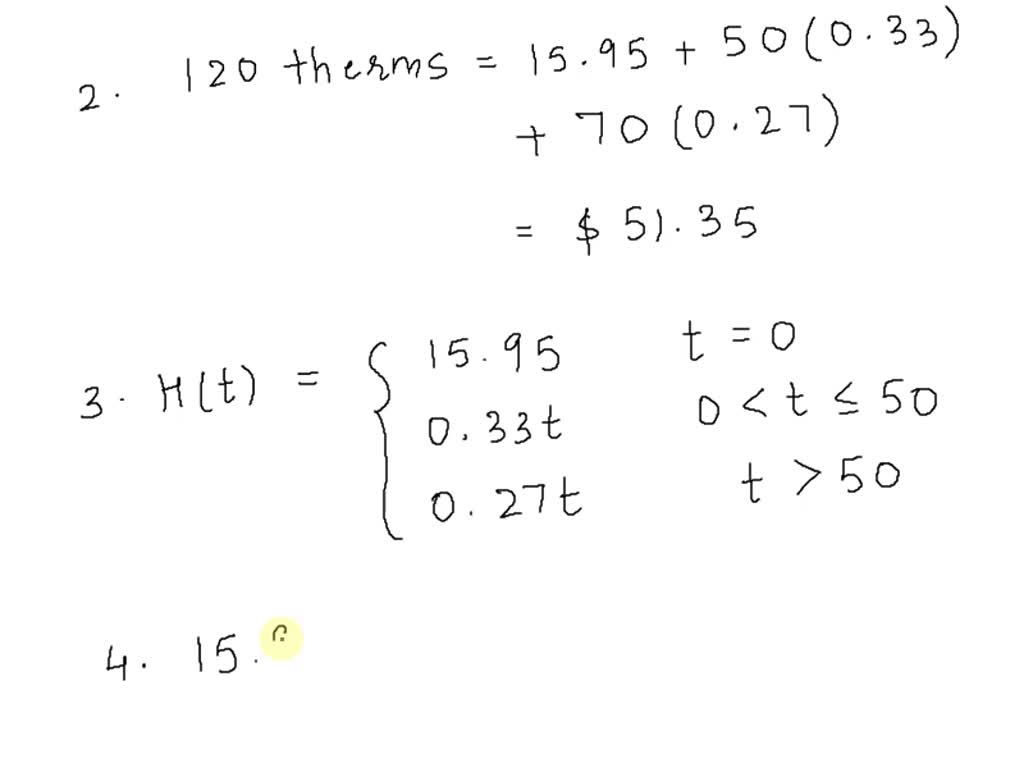 2. 120 therms = 15.95 + 50(0.33)
+ 70(0.27)
= $ 51.35
3. H(t) = { 15.95 t = 0
0.33t 0 < t ≤ 50
0.27t t > 50
4. 15.